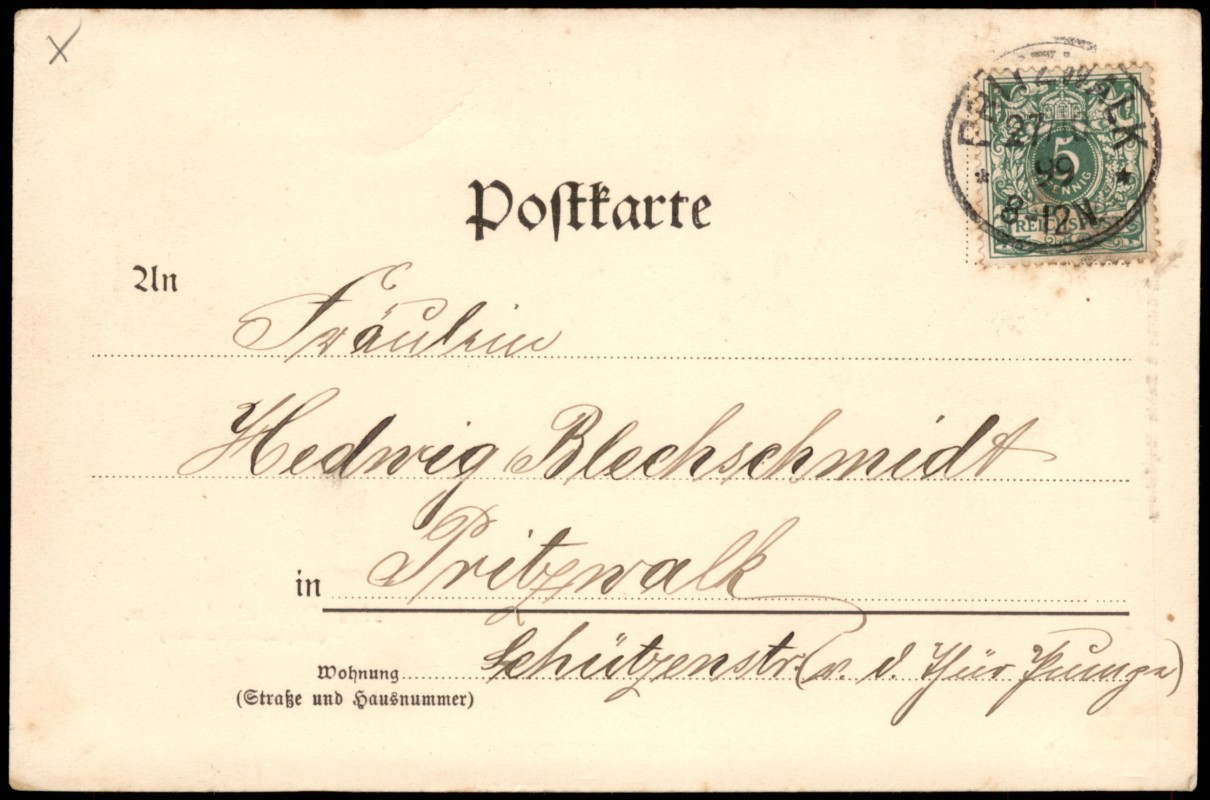 PRITZWALK
27
99
8-12 N.
5
PFENNIG
REICHSPOST
Postkarte
An
Fräulein
Hedwig Blechschmidt
in Pritzwalk
Wohnung Schützenstr. (v. d. Thür
(Straße und Hausnummer)